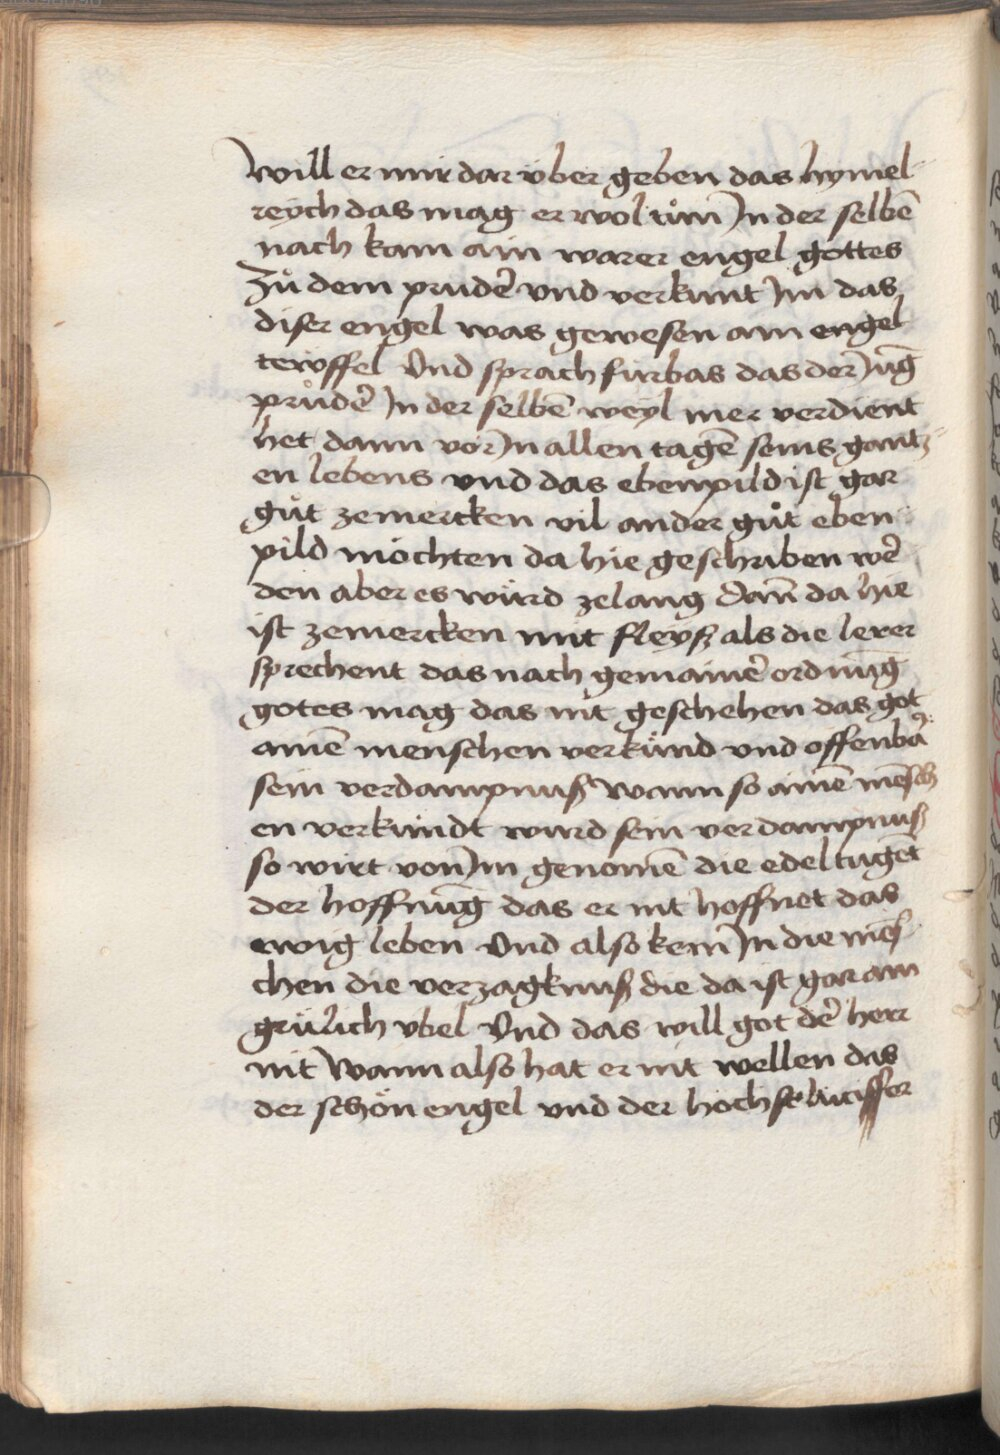 Will er mir dar über geben das hymel-
reych das mag er wol tůn In der selbē
nach kam ain warer engel gottes
Zů dem prudē vnd verkunt Im das
diser engel was gewesen ain engel
tewffel Vnd sprach fürbas das der Jūg
průdē In der selbē weyl mer verdient
het dann vor In allen tagē seins gantz-
en lebens vnd das ebenpild ist gar
gůt zemercken vil ander gůt eben-
pild möchten da hie geschriben wē
den aber es würd zelang Dañ da hie
ist zemercken mit fleyß als die lerer
sprechent das nach gemainē ordnūg
gotes mag das nit geschehen das got
ainē menschen verkünd vnd offenbā
sein verdampnuß Wann so ainē mēsch
en verkündt wurd sein verdampnuß
so wirt von Im genomē die edel tugēt
der hoffnūg das er nit hoffnet das
ewig leben Vnd also kem In die mēs
chen die verzagknuß die da ist gar ain
grülich vbel Vnd das will got dē herr
nit Wann also hat er nit wellen das
der schön engel vnd der höchst luciffer